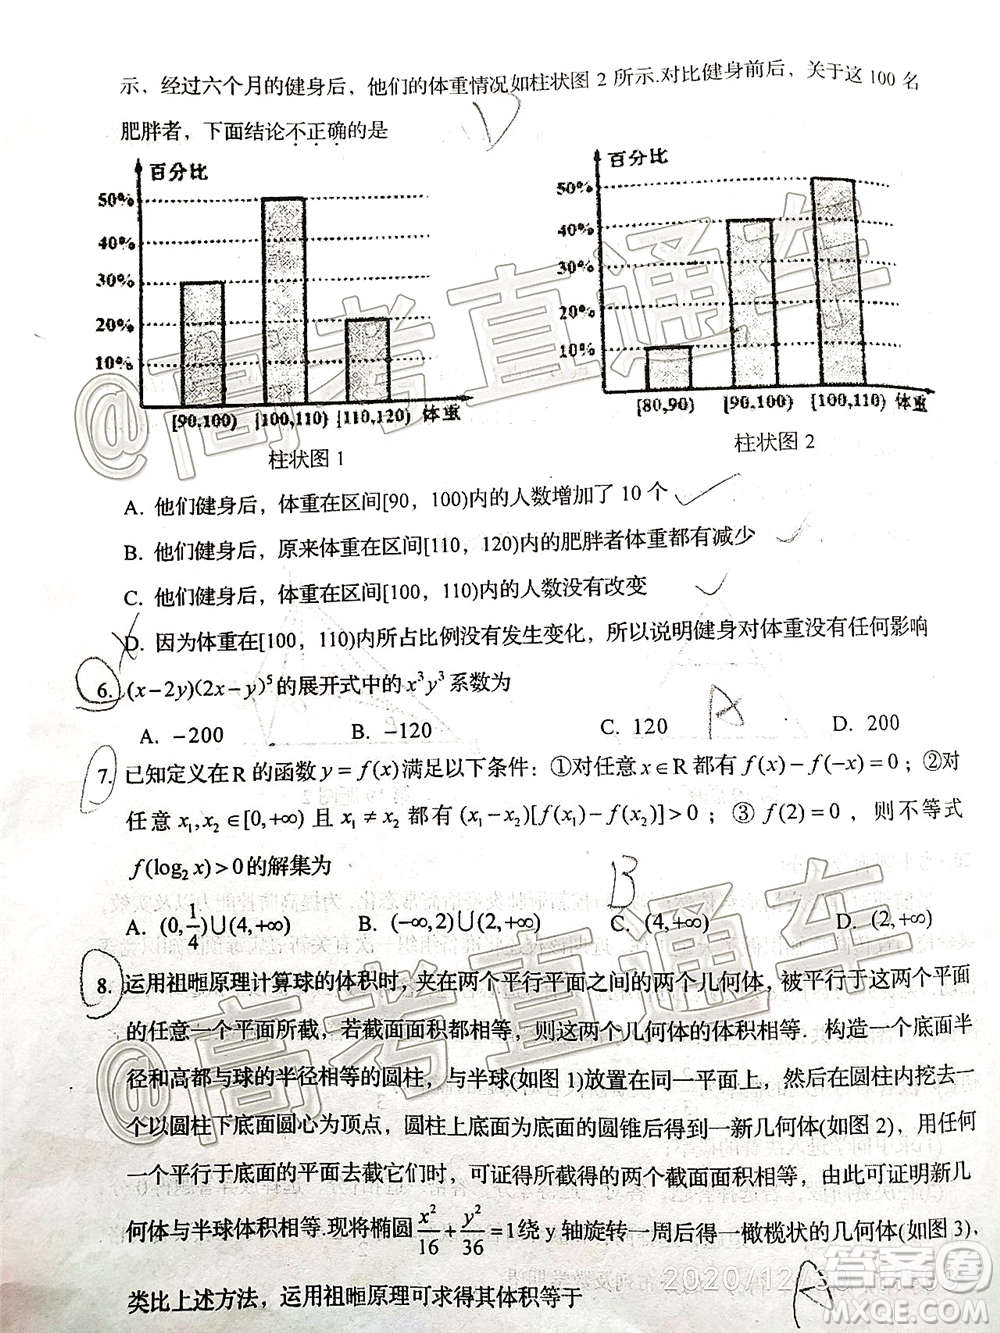 示，经过六个月的健身后，他们的体重情况如柱状图 2 所示.对比健身前后，关于这 100 名
肥胖者，下面结论不正确的是
D
百分比
50%
40%
30%
20%
10%
[90,100) [100,110) [110,120) 体重
柱状图 1
百分比
50%
40%
30%
20%
10%
[80,90) [90,100) [100,110) 体重
柱状图 2
A. 他们健身后，体重在区间[90，100)内的人数增加了 10 个
B. 他们健身后，原来体重在区间[110，120)内的肥胖者体重都有减少
C. 他们健身后，体重在区间[100，110)内的人数没有改变
D. 因为体重在[100，110)内所占比例没有发生变化，所以说明健身对体重没有任何影响
6. (x−2y)(2x−y)⁵的展开式中的 x³y³ 系数为
A
A. −200 B. −120 C. 120 D. 200
7. 已知定义在 R 的函数 y = f(x) 满足以下条件：①对任意 x∈R 都有 f(x)−f(−x)=0；②对
任意 x₁,x₂∈[0,+∞) 且 x₁≠x₂ 都有 (x₁−x₂)[f(x₁)−f(x₂)]>0；③ f(2)=0，则不等式
f(log₂x)>0的解集为
B
A. (0,1/4)∪(4,+∞) B. (−∞,2)∪(2,+∞) C. (4,+∞) D. (2,+∞)
8. 运用祖暅原理计算球的体积时，夹在两个平行平面之间的两个几何体，被平行于这两个平面
的任意一个平面所截，若截面面积都相等，则这两个几何体的体积相等．构造一个底面半
径和高都与球的半径相等的圆柱，与半球(如图 1)放置在同一平面上，然后在圆柱内挖去一
个以圆柱下底面圆心为顶点，圆柱上底面为底面的圆锥后得到一新几何体(如图 2)，用任何
一个平行于底面的平面去截它们时，可证得所截得的两个截面面积相等，由此可证明新几
何体与半球体积相等.现将椭圆 x²/16 + y²/36 =1绕 y 轴旋转一周后得一橄榄状的几何体(如图 3)，
类比上述方法，运用祖暅原理可求得其体积等于
A
@高考直通车
@高考直通车
答案圈
MXQE.COM